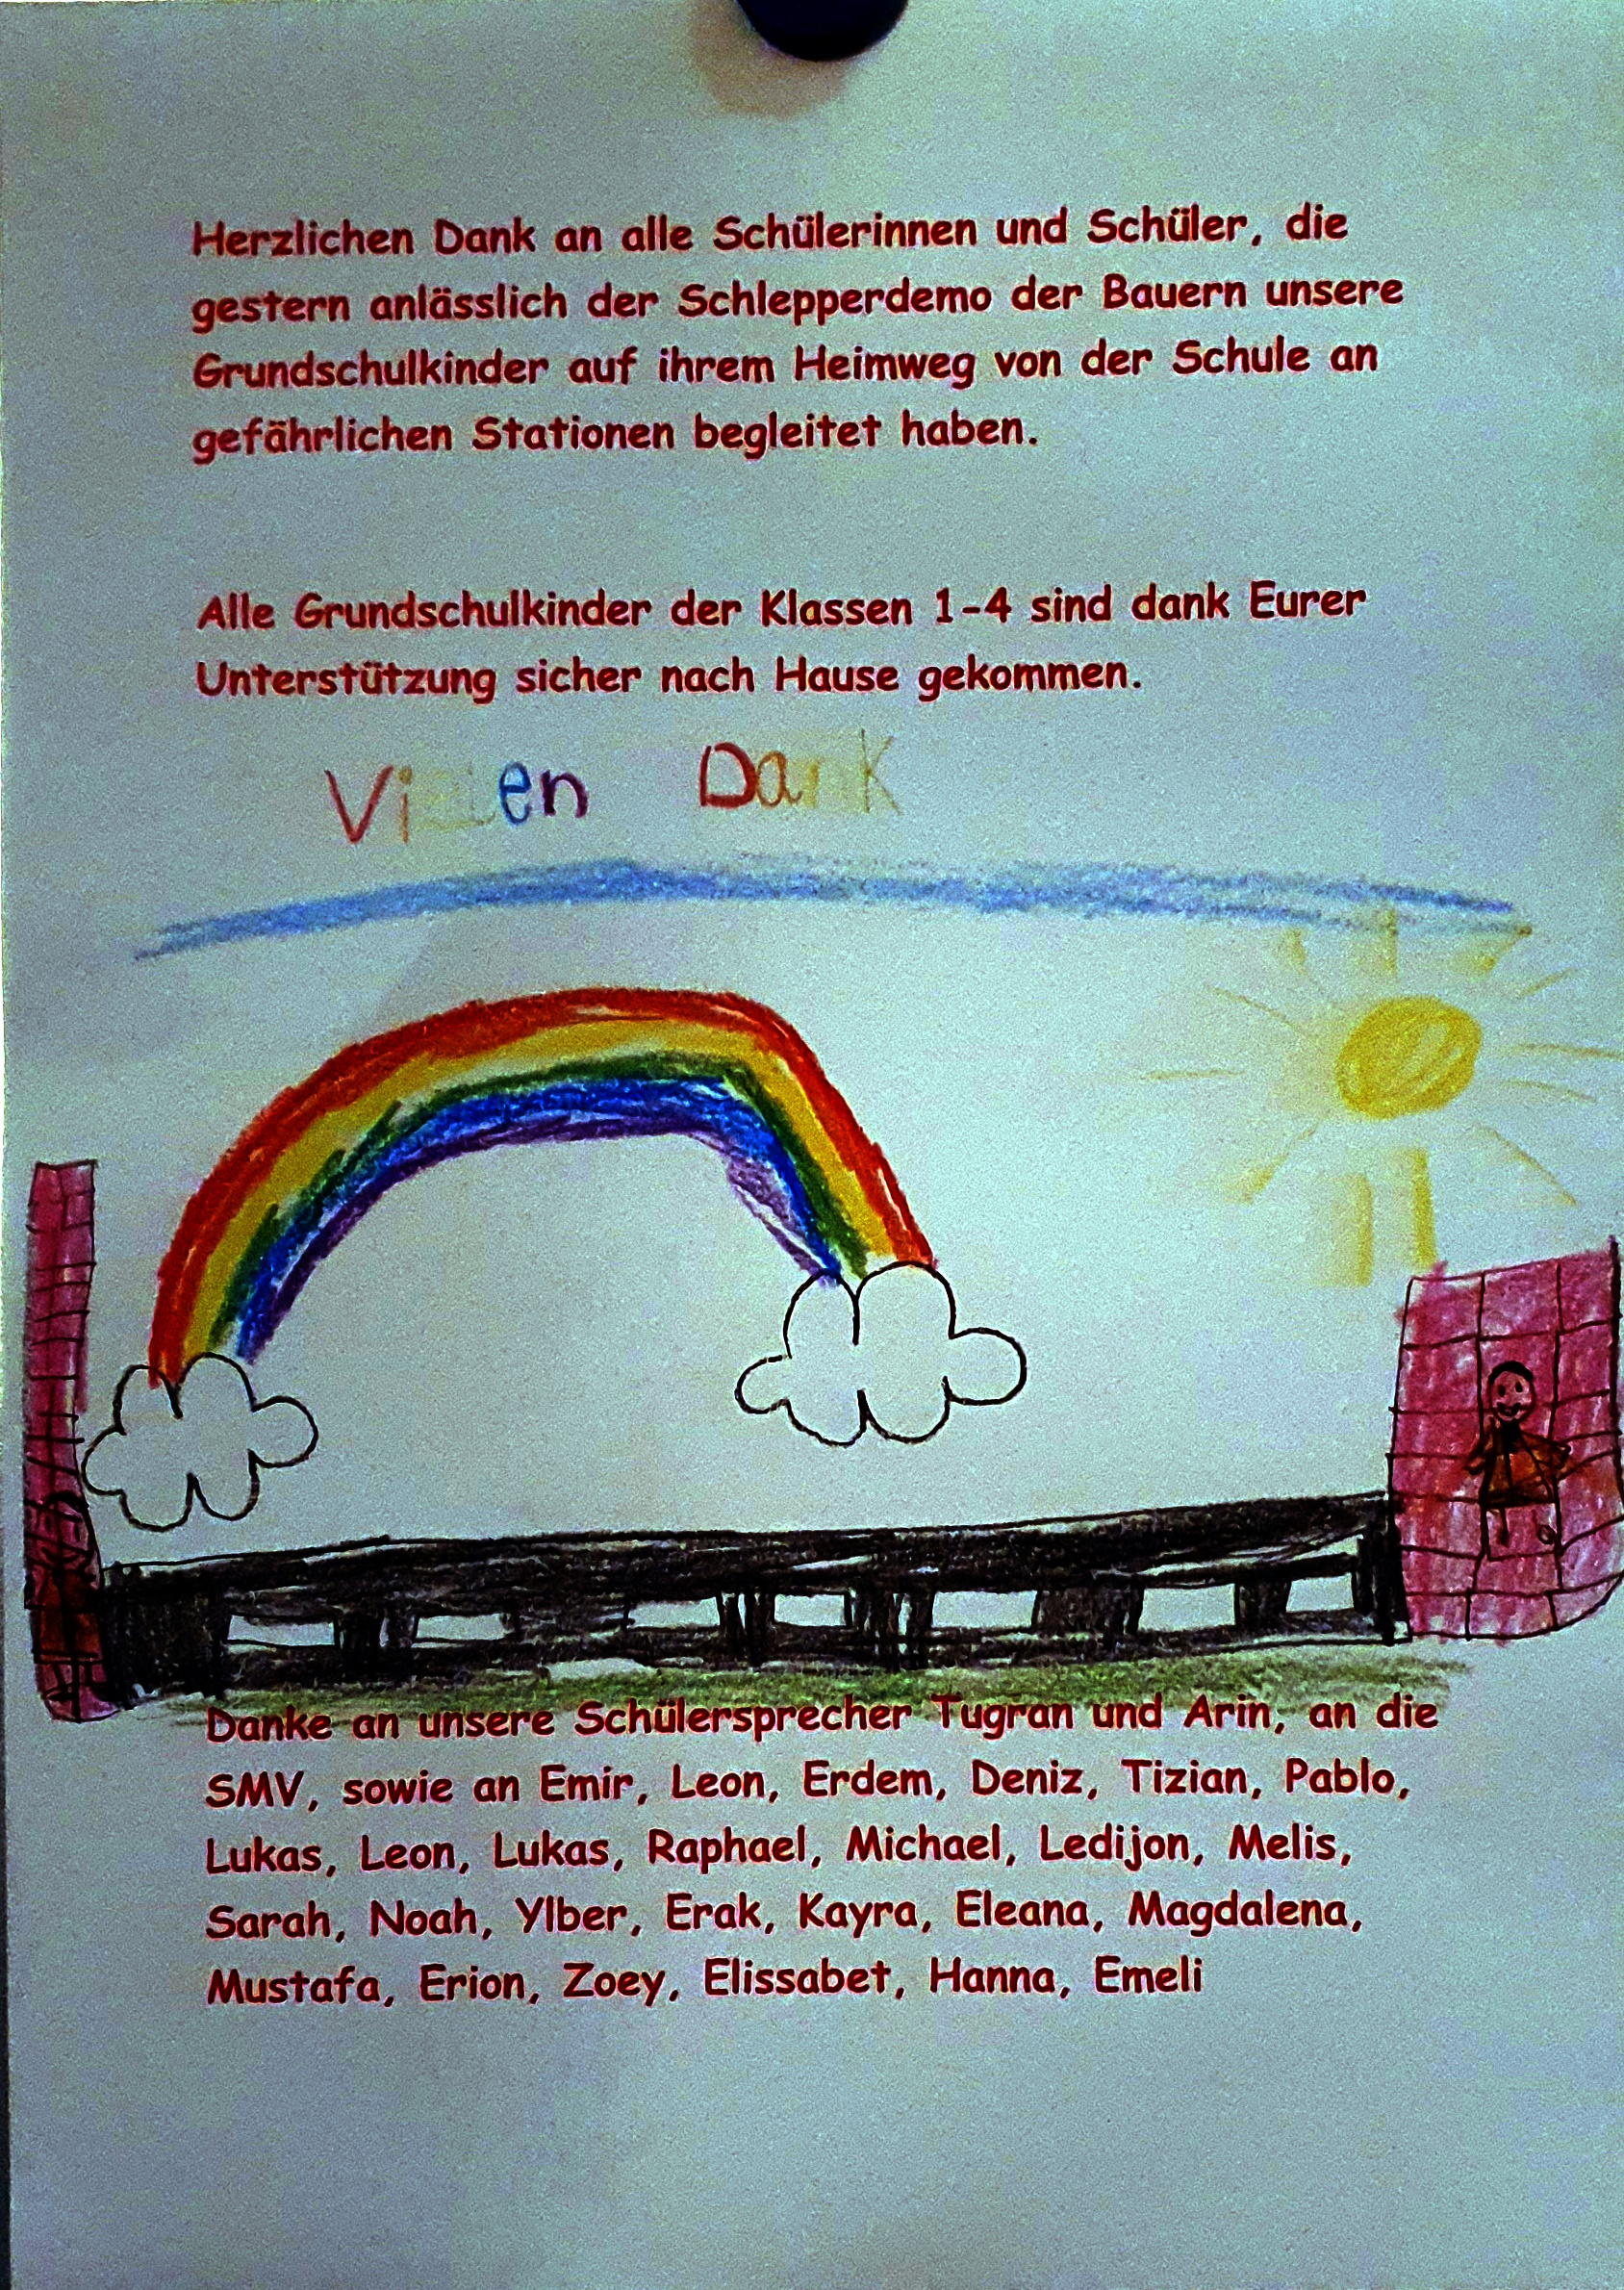 Herzlichen Dank an alle Schülerinnen und Schüler, die
gestern anlässlich der Schlepperdemo der Bauern unsere
Grundschulkinder auf ihrem Heimweg von der Schule an
gefährlichen Stationen begleitet haben.
Alle Grundschulkinder der Klassen 1-4 sind dank Eurer
Unterstützung sicher nach Hause gekommen.
Vielen Dank
Danke an unsere Schülersprecher Tugran und Arin, an die
SMV, sowie an Emir, Leon, Erdem, Deniz, Tizian, Pablo,
Lukas, Leon, Lukas, Raphael, Michael, Ledijon, Melis,
Sarah, Noah, Ylber, Erak, Kayra, Eleana, Magdalena,
Mustafa, Erion, Zoey, Elissabet, Hanna, Emeli